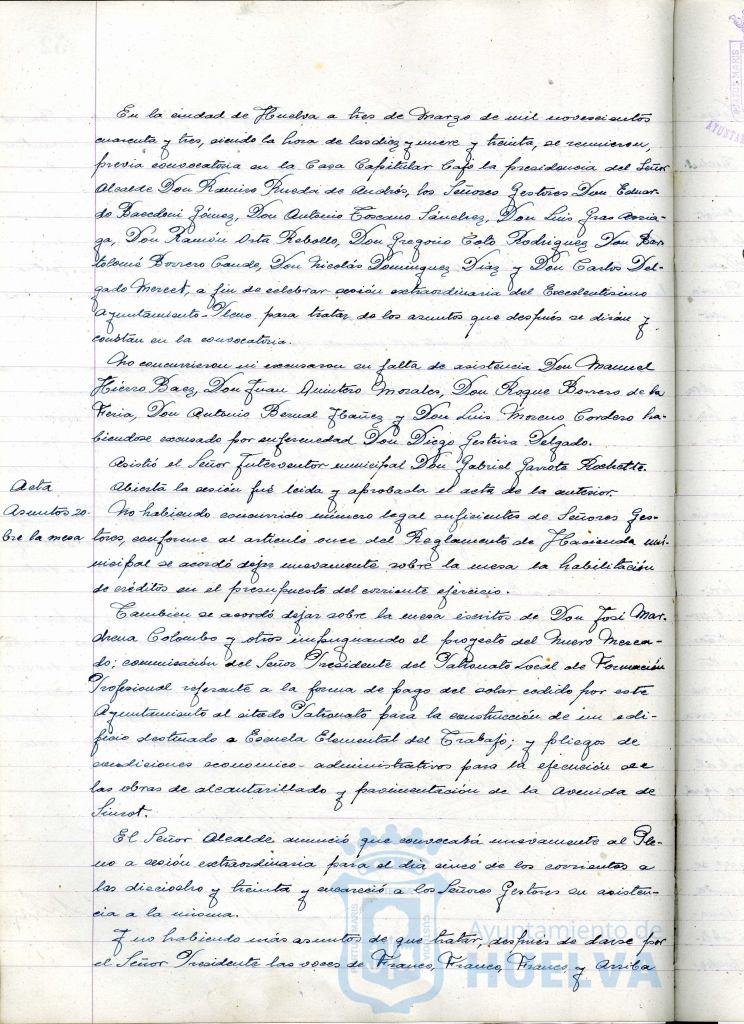 En la ciudad de Huelva a tres de Marzo de mil novescientos
cuarenta y tres, siendo la hora de las diez y nueve y treinta, se reunieron,
previa convocatoria en la Casa Capitular bajo la presidencia del Señor
Alcalde Don Ramiro Rueda de Andrés, los Señores Gestores Don Eduar-
do Baedoni Gómez, Don Antonio Toscano Sánchez, Don Luis Grao
ga, Don Ramón Orta Rebollo, Don Gregorio Coto Rodriguez Don Bar-
tolomé Borrero Conde, Don Nicolás Dominguez Diaz y Don Carlos Del-
gado Merect, a fin de celebrar sesión extraordinaria del Excelentisimo
Ayuntamiento-Pleno para tratar de los asuntos que después se dirán y
constan en la convocatoria.
No concurrieron ni excusaron su falta de asistencia Don Manuel
Hierro Baez, Don Juan Quintero Morales, Don Roque Borrero de la
Feria, Don Antonio Bernal Ibañez y Don Luis Moreno Cordero ha-
biendose excusado por enfermedad Don Diego Gesteira Delgado.
Asistió el Señor Interventor municipal Don Gabriel Garrote Rochette.
Acta
Abierta la sesión fué leida y aprobada el acta de la anterior.
Asuntos so-
No habiendo concurrido número legal suficientes de Señores Ges-
bre la mesa
tores, conforme al articulo once del Reglamento de Hacienda mu-
nicipal se acordó dejar nuevamente sobre la mesa la habilitación
de créditos en el presupuesto del corriente ejercicio.
Tambien se acordó dejar sobre la mesa escritos de Don José Mar-
chena Colombo y otros impugnando el proyecto del Nuevo Merca-
do; comunicación del Señor Presidente del Patronato Local de Formación
Profesional referente a la forma de pago del solar cedido por este
Ayuntamiento al citado Patronato para la construcción de un edi-
ficio destinado a Escuela Elemental del Trabajo; y pliegos de
condiciones economico-administrativos para la ejecución de
las obras de alcantarillado y pavimentación de la Avenida de
Siurot.
El Señor Alcalde anunció que convocará nuevamente al Ple-
no a sesión extraordinaria para el dia cinco de los corrientes a
las dieciocho y treinta y encareció a los Señores Gestores su asisten-
cia a la misma.
Y no habiendo más asuntos de que tratar, después de darse por
el Señor Presidente las voces de Franco, Franco, Franco y Arriba
Ayuntamiento de
HUELVA